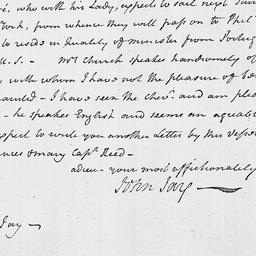 who with his Lady, expect to sail next
York, from whence they will pass on to Phil
to reside in Quality of minister from Portug
U.S. — Mrs Church speaks handsomely of
, with whom I have not the pleasure of be
— I have seen the Chevr. and am plea
— he speaks English and seems an agreeable
expect to write you another Letter by this Vessel
mary Capt. Reed —
adieu — your most affectionately
John Jay —
Jay —